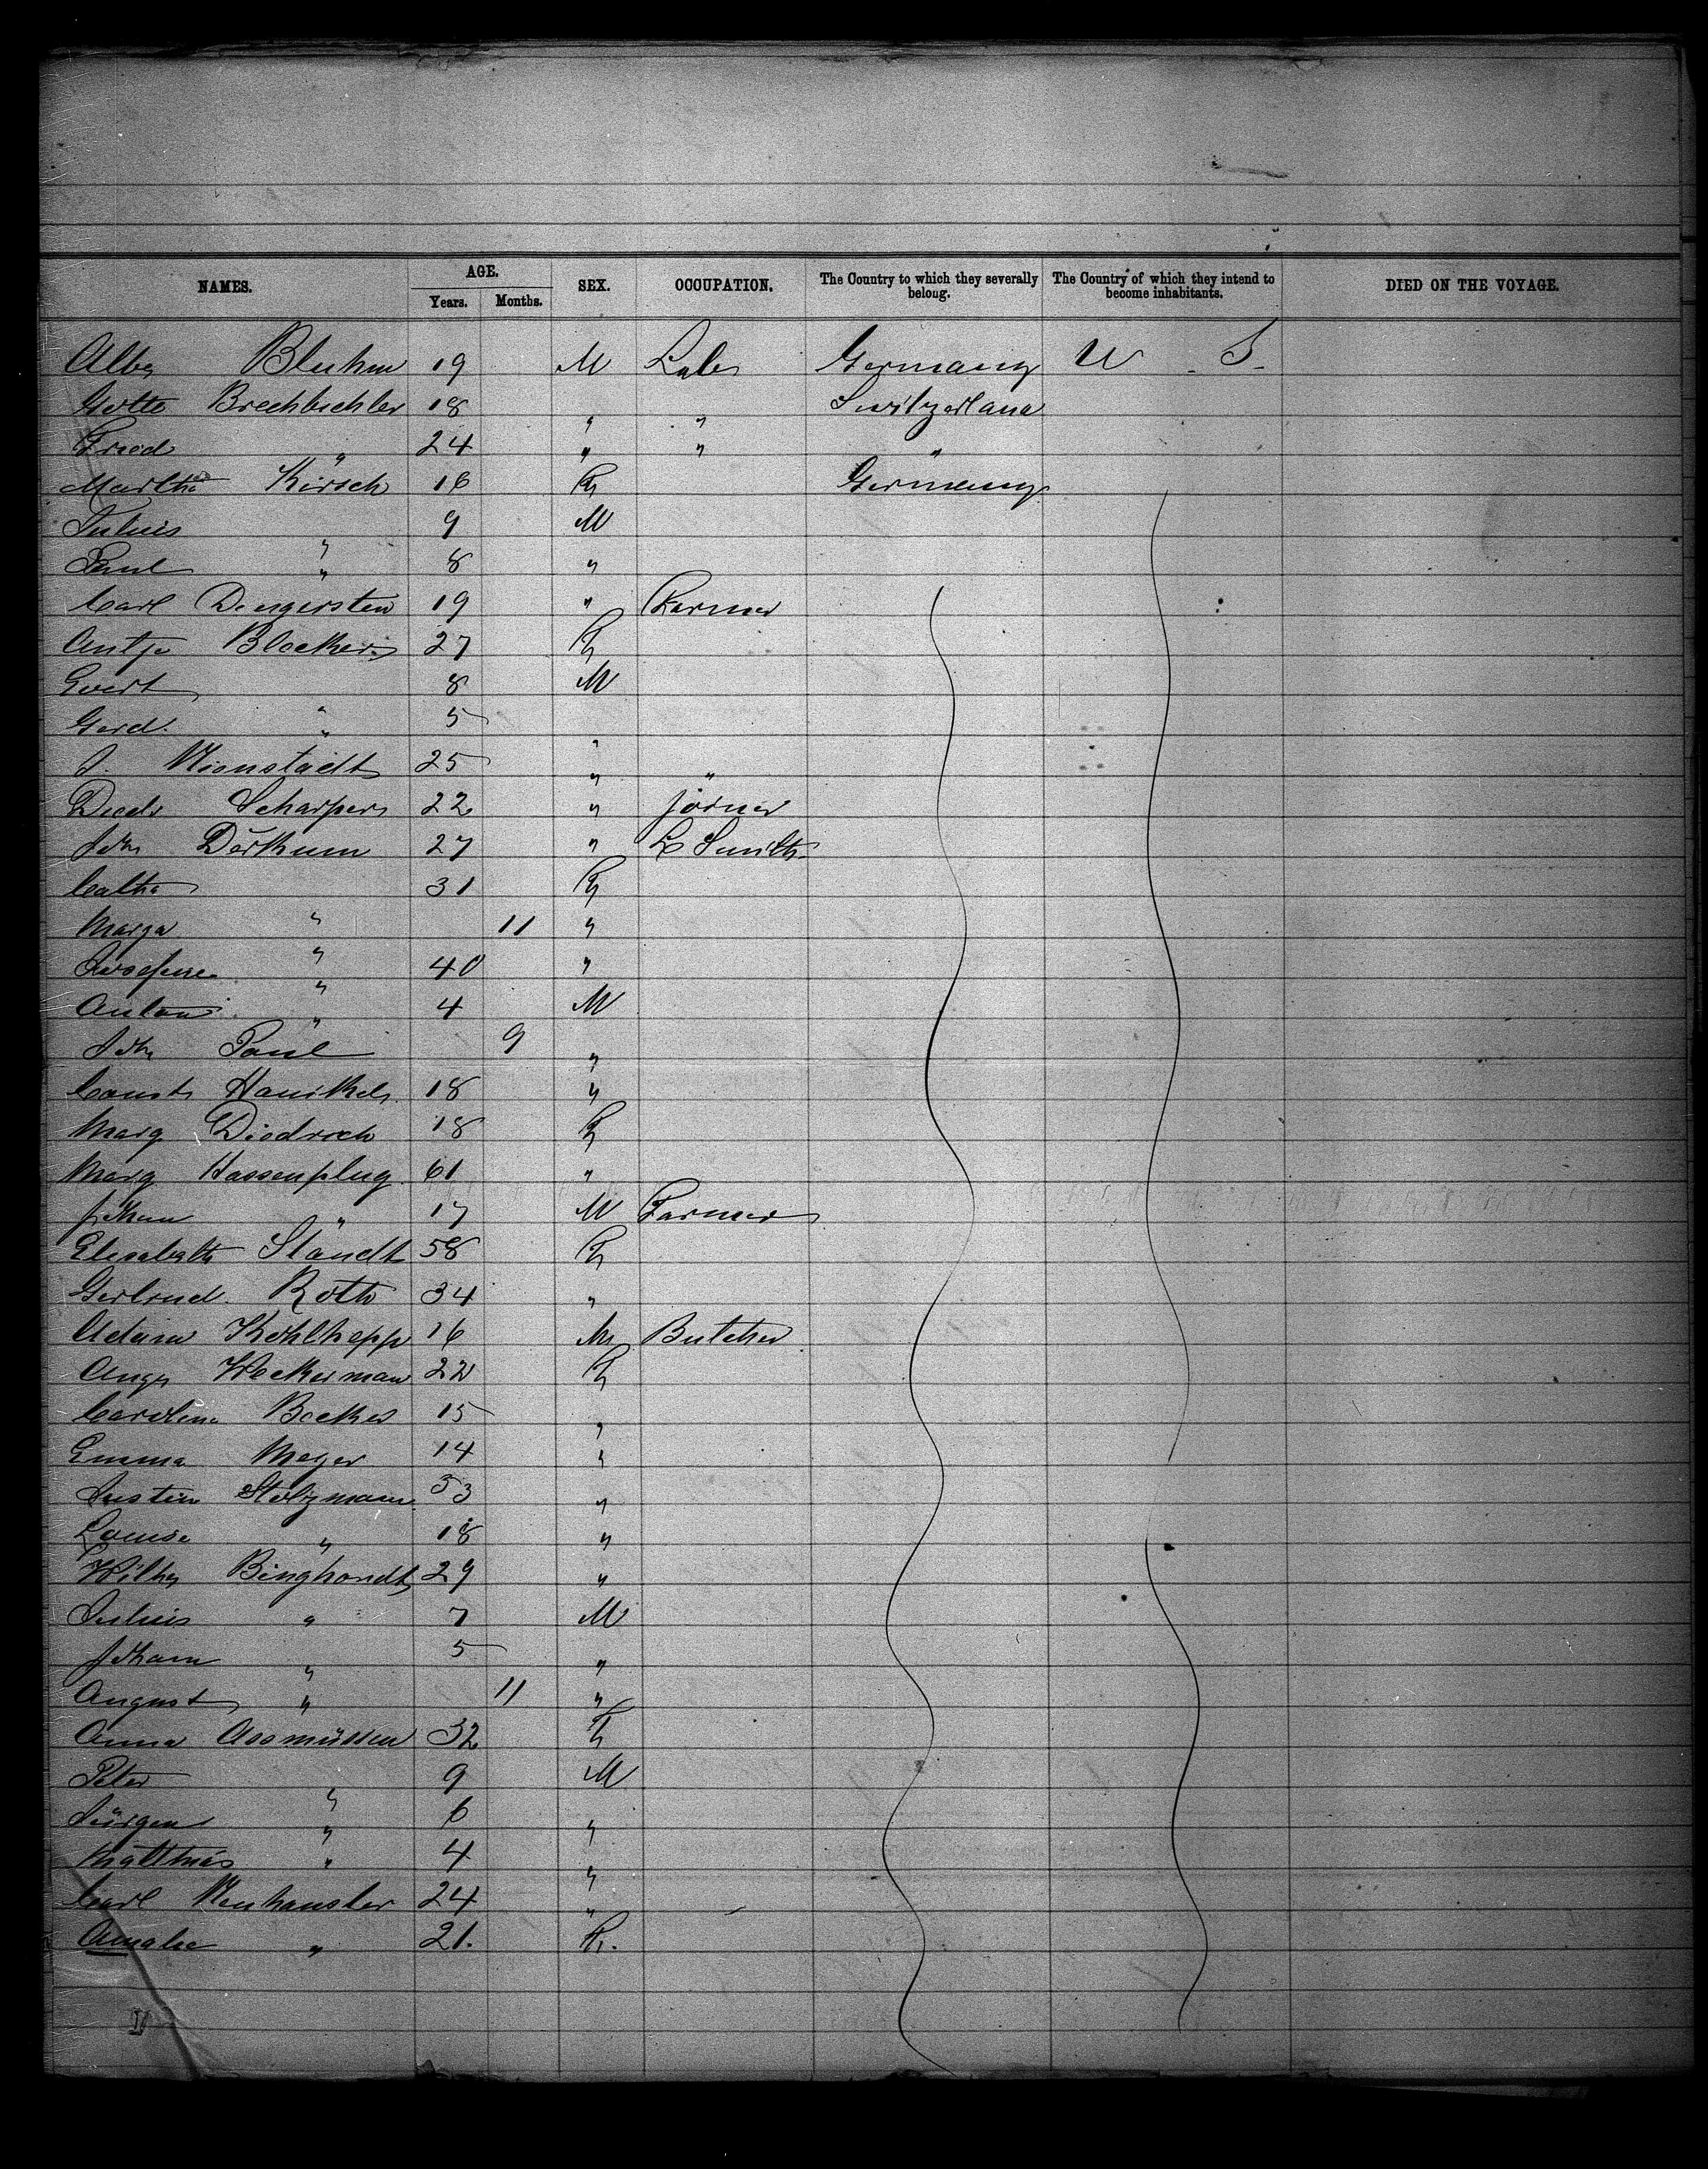 NAMES. AGE. Years. Months. SEX. OCCUPATION. The Country to which they severally belong. The Country of which they intend to become inhabitants. DIED ON THE VOYAGE.
Albr Bluhm 19 M Labr Germany U S
Gotte Brechbichler 18 " " Switzerland
Fried " 24 " " "
Martha Kirsch 16 F Germany
Julius " 9 M
Paul " 8 "
Carl Dengersten 19 " Farmer
Antje Blocker 27 F
Evert " 8 M
Gerd. " 5 "
J. Nienstadt 25 " "
Diedr Scharper 22 " joiner
Joh Dörkum 27 " L Smith
Catha " 31 F
Marga " 11 "
Josefine " 40 "
Anton " 4 M
Joh Paul 9 "
Const Hanikel 18 "
Marg Diedrich 18 F
Marg Hassenplug 61 "
Johan " 17 M Farmer
Elisabeth Standt 58 F
Gertrud. Roth 34 "
Adam Kohlhepp 16 M Butcher
Auge Weckerman 22 F
Carolina Becker 15 "
Emma Meyer 14 "
Justin Stolzmann 53 "
Louise " 18 "
Wilhe Binghardt 29 "
Julius " 7 M
Joham " 5 "
August " 11 "
Anna Assmussen 32 F
Peter " 9 M
Jürgen " 6 "
Matthias " 4 "
Carl Neuhausler 24 "
Amalie " 21. F.